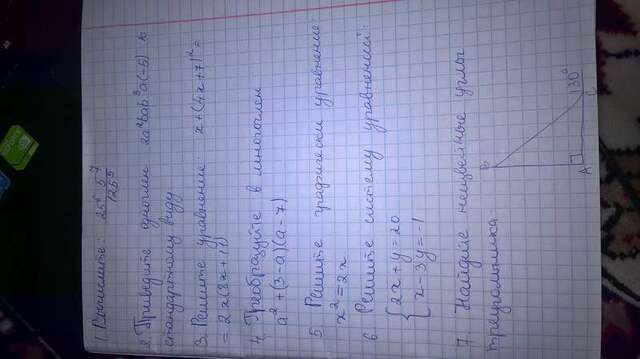 1. Вычислите: 25⁶ 5⁷
125⁵
2. Приведите одночлен 2a²bab³a(-5) к
стандартному виду
3. Решите уравнение x+(4x+7)²=
= 2x(8x+11)
4. Преобразуйте в многочлен
a²+(3-a)(a-7)
5 Решите графически уравнение:
x²=2x
6 Решите систему уравнений:
{2x+y=20
x-3y=-1
7. Найдите неизвейные углы
треугольника.
B
130°
A C